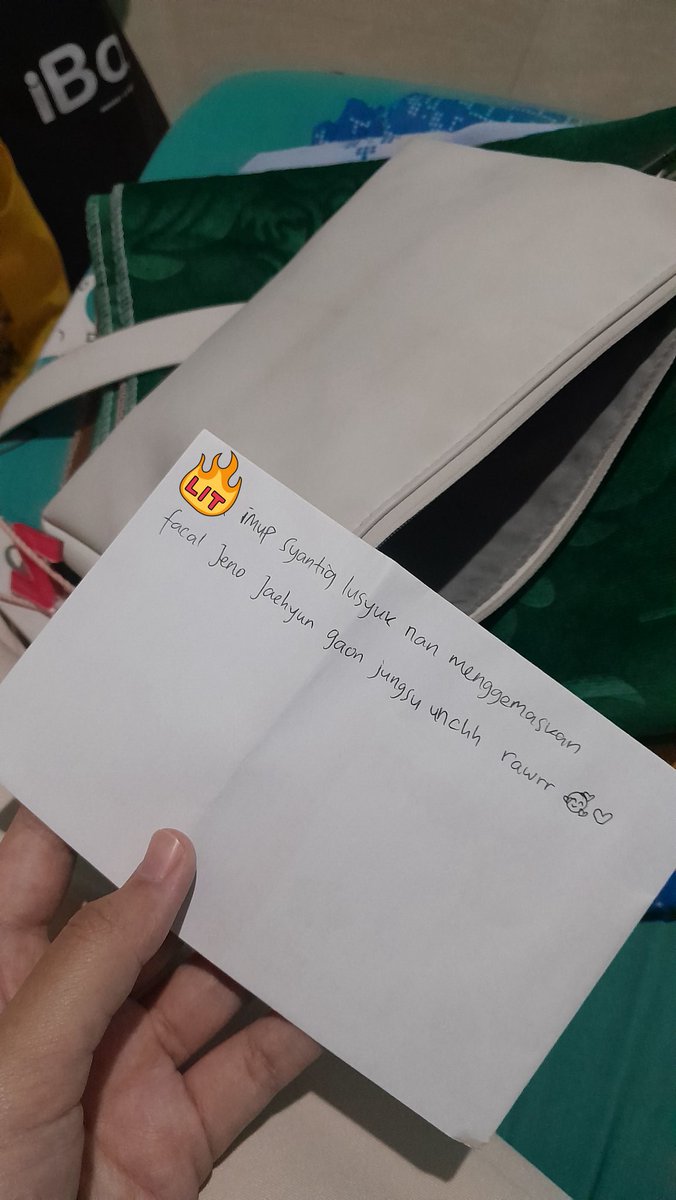 iBo
LIT
imup syantiq lusyuk nan menggemaskan
facal Jeno Jaehyun gaon jungsu unchh rawrr